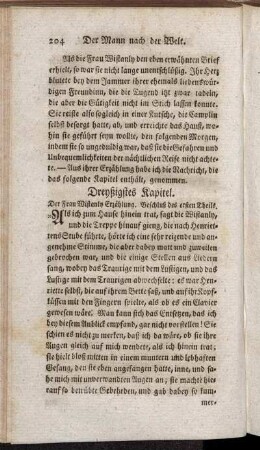 204 Der Mann nach der Welt.
Als die Frau Wistanly den eben erwähnten Brief
erhielt, so war sie nicht lange unentschlüßig. Ihr Herz
blutete bey dem Jammer ihrer ehemals liebenswür-
digen Freundinn, die die Tugend itzt zwar tadeln,
die aber die Gütigkeit nicht im Stich lassen konnte.
Sie reiste also sogleich in einer Kutsche, die Camplin
selbst besorgt hatte, ab, und erreichte das Hauß, wo-
hin sie geführt seyn wollte, den folgenden Morgen,
indem sie so ungeduldig war, daß sie die Gefahren und
Unbequemlichkeiten der nächtlichen Reise nicht achte-
te. — Aus ihrer Erzählung habe ich die Nachricht, die
das folgende Kapitel enthält, genommen.
Dreyßigstes Kapitel.
Der Frau Wistanly Erzählung. Beschluß des ersten Theils.
„Als ich zum Hause hinein trat, sagt die Wistanly,
und die Treppe hinauf gieng, die nach Henriet-
tens Stube führete, hörte ich eine sehr reizende und an-
genehme Stimme, die aber dabey zu laut und dabey et-
was wankend war, und die einige Stellen aus Liedern
sang, wobey das Traurige mit dem Lustigen, und das
Lustige mit dem Traurigen abwechselte: es war Hen-
riette selbst, die auf ihrem Bette saß, und auf ihr Kopf-
küssen mit den Fingern spielte, als ob es ein Clavier
gewesen wäre. Man kann sich das Entsetzen, das ich
bey diesem Anblick empfand, gar nicht vorstellen! Sie
schien es nicht zu merken, daß ich da wäre, ob sie ihre
Augen gleich auf mich wendete, als ich hinein trat;
sie hielt blos mitten in einem muntern und lebhaften
Gesang, den sie eben angefangen hatte, inne, und sa-
he mich mit unverwandten Augen an; sie machte hier-
auf so betrübte Geberden, und gab dabey so kum-
mer-